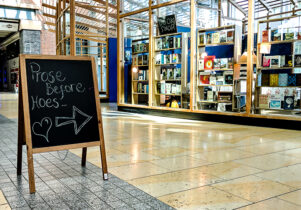 Prose
Before
Hoes...